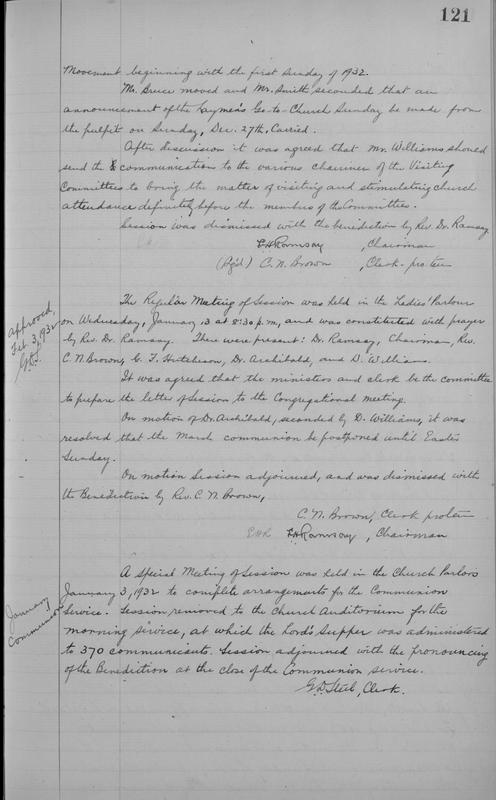 121
Movement beginning with the first Sunday of 1932.
Mr. Bruce moved and Mr. Smith seconded that an
announcement of the Laymen's Go-to-Church Sunday be made from
the pulpit on Sunday, Dec. 27th, Carried.
After discussion it was agreed that Mr. Williams should
send the communication to the various chairmen of the Visiting
Committees to bring the matter of visiting and stimulating church
attendance definitely before the members of the Committees.
Session was dismissed with the benediction by Rev. Dr. Ramsay
EHRamsay , Chairman
(Sg'd) C. N. Brown , Clerk - pro tem
Approved,
Feb. 3, 1932
G.D.S.
The Regular Meeting of Session was held in the Ladies' Parlour
on Wednesday, January 13 at 8:30 p.m, and was constituted with prayer
by Rev. Dr. Ramsay. There were present: Dr. Ramsay, Chairman, Rev.
C. N Brown, G. F. Hutcheson, Dr. Archibald, and D. Williams.
It was agreed that the ministers and clerk be the committee
to prepare the letter of Session to the Congregational Meeting.
On motion of Dr. Archibald, seconded by D. Williams, it was
resolved that the March communion be postponed until Easter
Sunday.
On motion Session adjourned, and was dismissed with
the Benediction by Rev. C. N. Brown,
C. N. Brown, Clerk pro tem
EHR EHRamsay , Chairman
January
Communion
A special Meeting of Session was held in the Church Parlors
January 3, 1932 to complete arrangements for the Communion
Service. Session removed to the Church Auditorium for the
morning service, at which the Lord's Supper was administered
to 370 communicants. Session adjourned with the pronouncing
of the Benediction at the close of the Communion service.
G.D. Steel, Clerk.